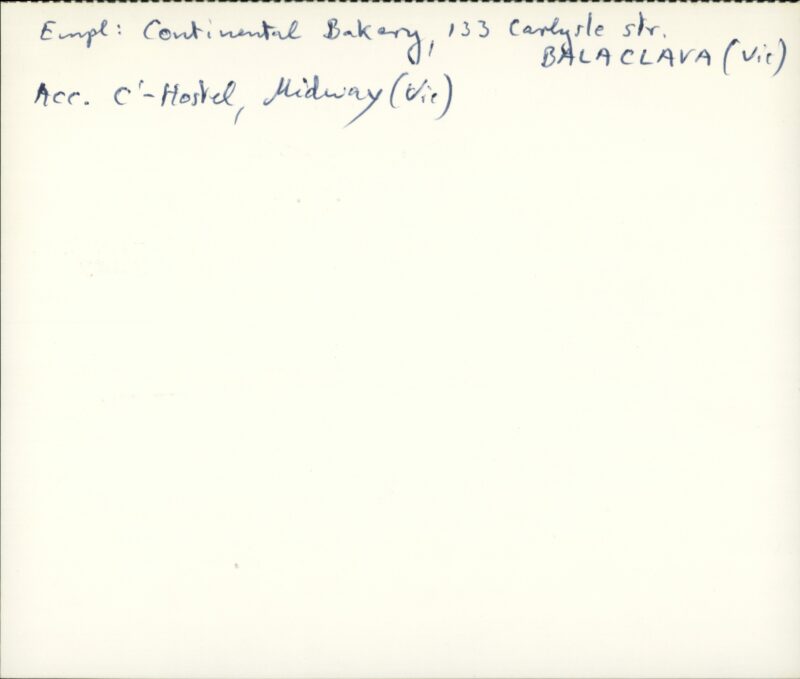 Empl: Continental Bakery, 133 Carlysle str.
BALACLAVA (Vic)
Acc. C'-Hostel, Midway (Vic)